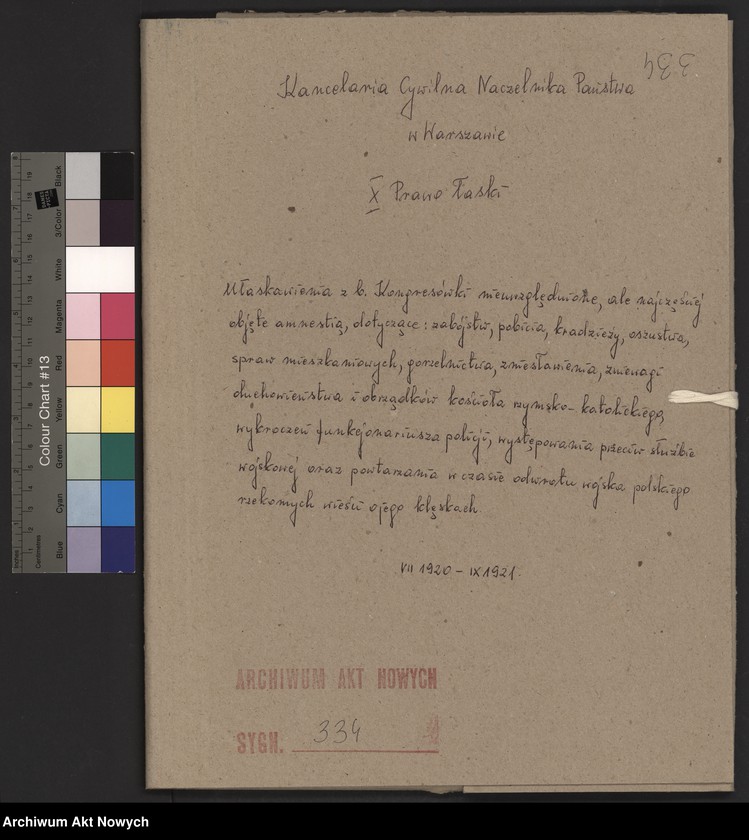 334
Kancelaria Cywilna Naczelnika Państwa
w Warszawie
X Prawo Łaski
Ułaskawienia z b. Kongresówki nieuwzględnione, ale najczęściej
objęte amnestią, dotyczące: zabójstw, pobicia, kradzieży, oszustwa,
spraw mieszkaniowych, gorzelnictwa, zniesławienia, zniewagi
duchowieństwa i obrządków kościoła rzymsko-katolickiego,
wykroczeń funkcjonariusza policji, występowania przeciw służbie
wojskowej oraz powtarzania w czasie odwrotu wojska polskiego
rzekomych wieści o jego klęskach.
VII 1920 - IX 1921.
ARCHIWUM AKT NOWYCH
SYGN. 334
Colour Chart #13
Black
3/Color
White
Magenta
Red
Yellow
Green
Cyan
Blue
Inches
Centimetres
Archiwum Akt Nowych